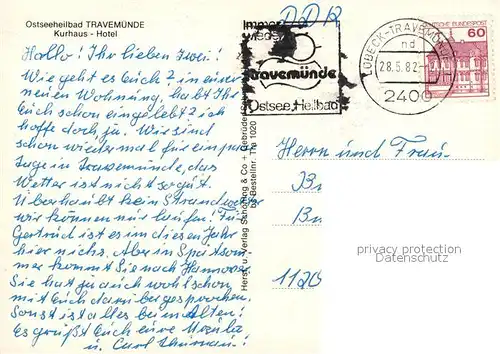 Ostseeheilbad TRAVEMÜNDE
Kurhaus - Hotel
Hallo! Ihr lieben Zwei!
Wie geht es Euch 2 in eurer
neuen Wohnung, habt Ihr
Euch schon eingelebt? ich
hoffe doch, ju. Wir sind
schon wieder mal für ein paar
Tage in Travemünde, das
Wetter ist nicht so gut.
Überhaubt kein Strandwetter
wir können nur laufen! Für
Gertrud ist es in diesem Jahr
hier nichts. Aber im Spätsom-
mer kommt Sie nach Hannover
Sie hat ja auch wohl schon
mit Euch darüber gesprochen.
Sonst ist alles beim Alten!
Es grüßt Euch eure Ursula
u. Curt
Herst. u. Verlag Schöning & Co + Gebrüder
Bestellnr. Tra 1020
DDR
Immer
wieder
Travemünde
Ostsee-Heilbad
LÜBECK-TRAVEMÜNDE
nd
28.5.82
2400
DEUTSCHE BUNDESPOST
60
Herrn und Frau
B
B
1120
privacy protection
Datenschutz